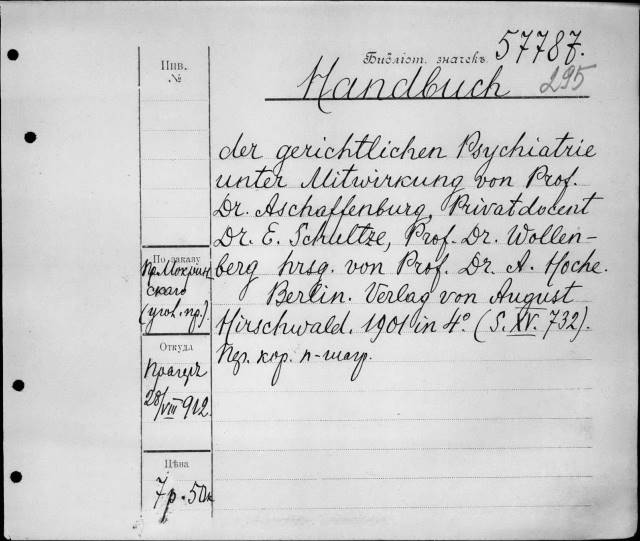 Библіот. значекъ 57787.
Инв. №
Handbuch 295
der gerichtlichen Psychiatrie
unter Mitwirkung von Prof.
Dr. Aschaffenburg, Privatdocent
Dr. E. Schultze, Prof. Dr. Wollen-
berg hrsg. von Prof. Dr. A. Hoche.
Berlin. Verlag von August
Hirschwald. 1901 in 4° (S. XV. 732).
кор. п-шагр.
По заказу
скаго
(угол. пр.).
Откуда
Прагеръ
28/VIII 912.
Цѣна
7 р. 50 к